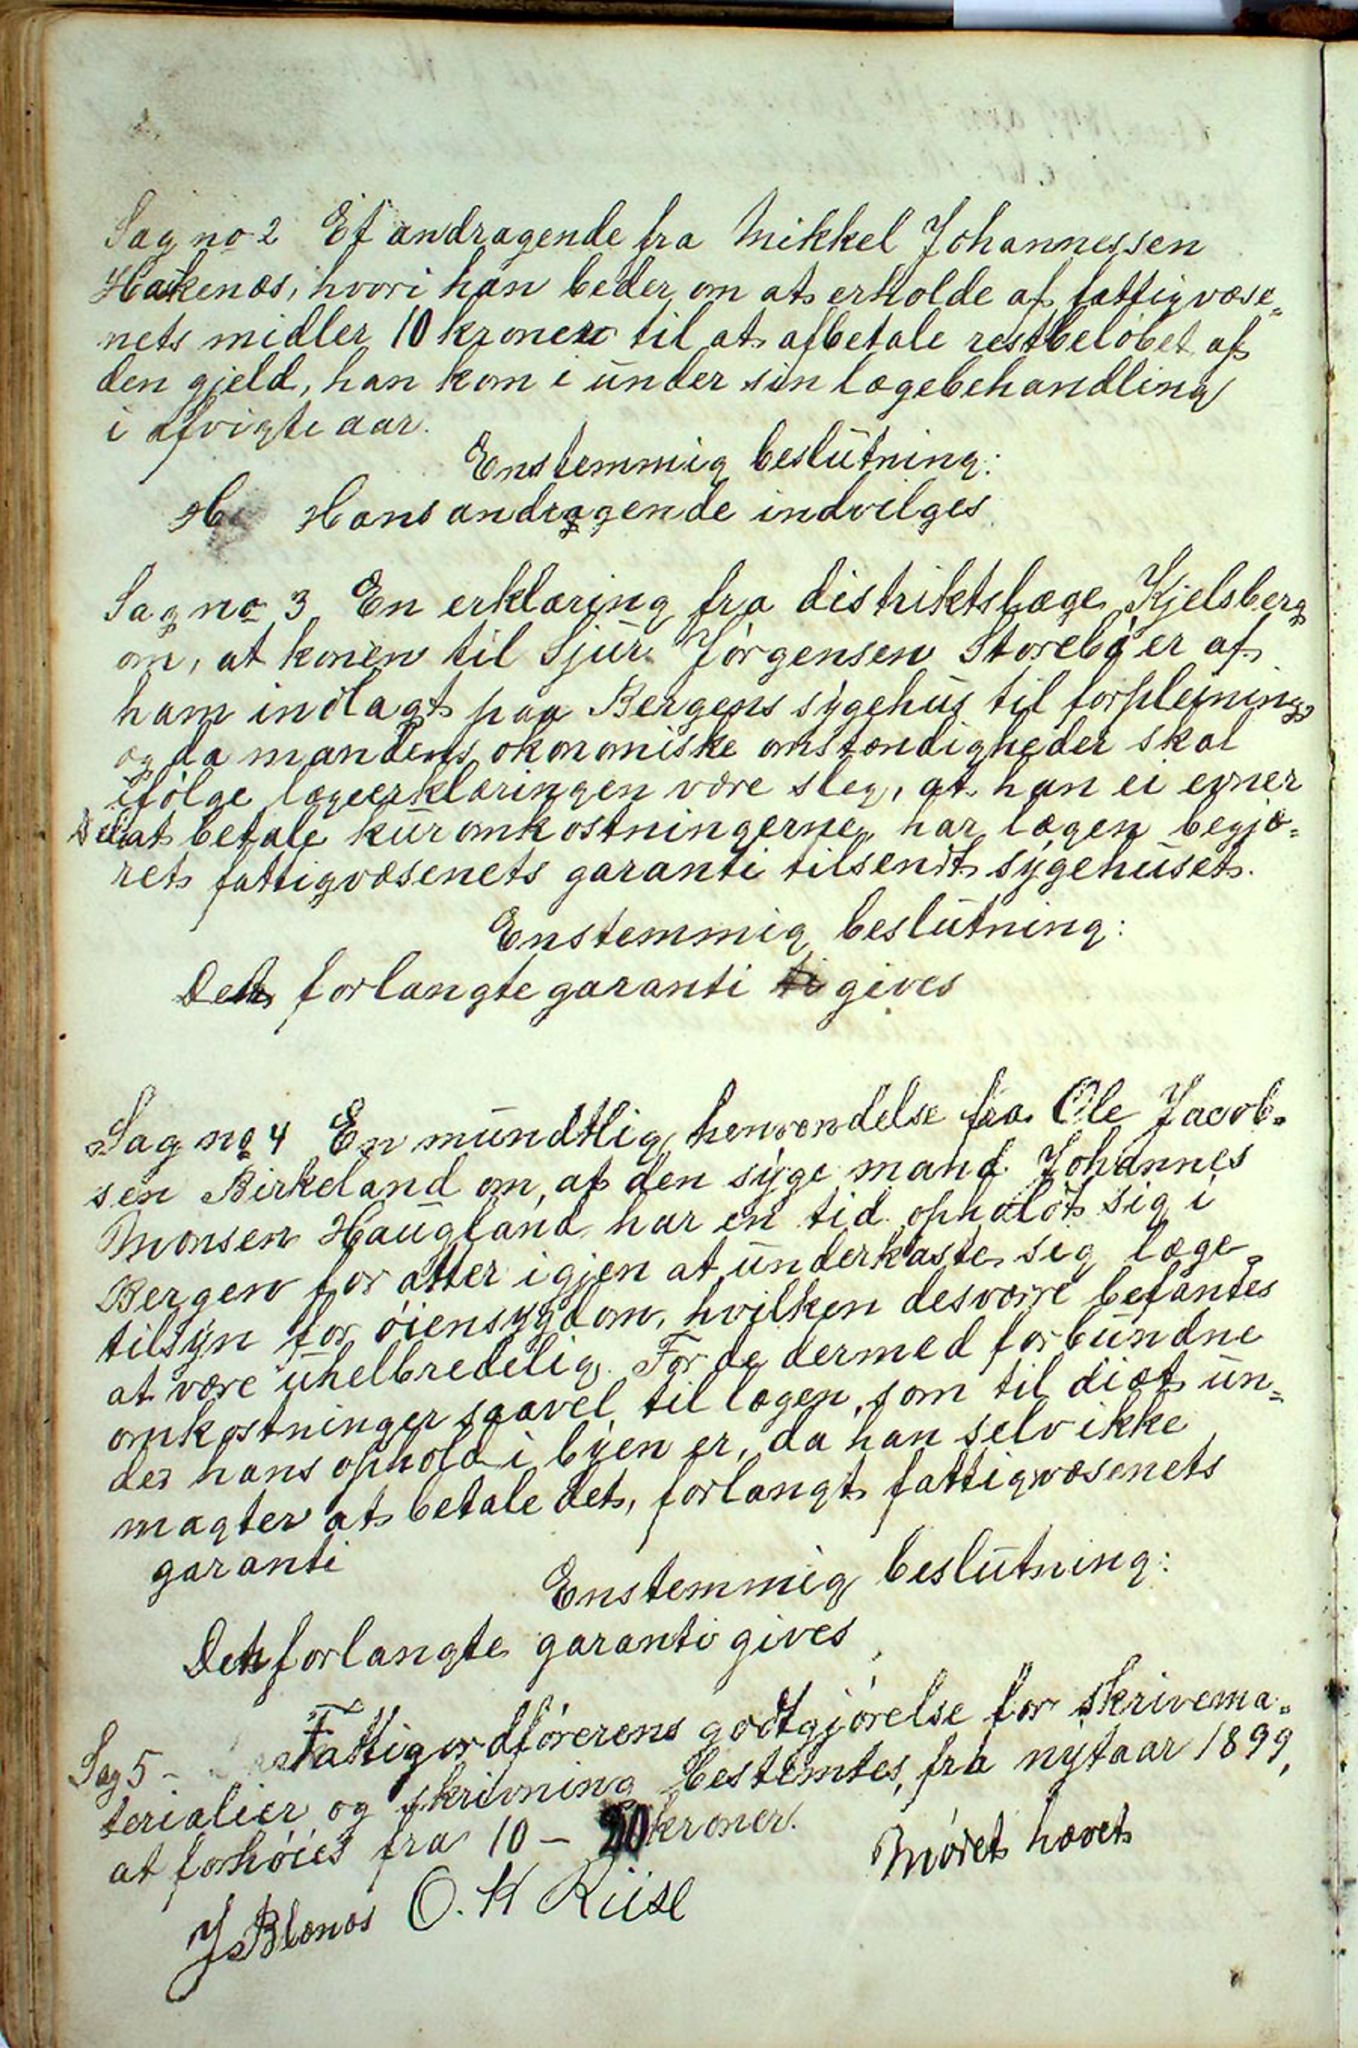 Sag no 2 Et andragende fra Mikkel Johannessen
Hakenæs, hvori han beder om at erholde af fattigvæse-
nets midler 10 kroner til at afbetale restbeløbet af
den gjeld, han kom i under sin lægebehandling
i afvigte aar.
Enstemmig beslutning:
Hans andragende indvilges
Sag no 3 En erklæring fra distriktslæge Kjelsberg
om, at konen til Sjur Jørgensen Storebø er af
ham indlagt paa Bergens sygehus til forpleining,
og da mandens økonomiske omstændigheder skal
ifølge lægeerklæringen være sleg, at han ei evner
at betale kuromkostningerne, har lægen begjæ-
ret fattigvæsenets garanti tilsendt sygehuset.
Enstemmig beslutning:
Den forlangte garanti gives
Sag no 4 En mundtlig henvendelse fra Ole Jacob-
sen Birkeland om, at den syge mand Johannes
Monsen Haugland har en tid opholdt sig i
Bergen for atter igjen at underkaste sig læge-
tilsyn for øiensygdom, hvilken desværre befantes
at være uhelbredelig. For de dermed forbundne
omkostninger saavel til lægen, som til diæt un-
der hans ophold i byen er, da han selv ikke
magter at betale det, forlangt fattigvæsenets
garanti
Enstemmig beslutning:
Den forlangte garanti gives
Sag 5 - Fattigordførerens godtgjørelse for skrivema-
terialier og skrivning bestemtes, fra nytaar 1899,
at forhøies fra 10 - 20 kroner.
Mødet hævet
J Blænæs O. K Riise